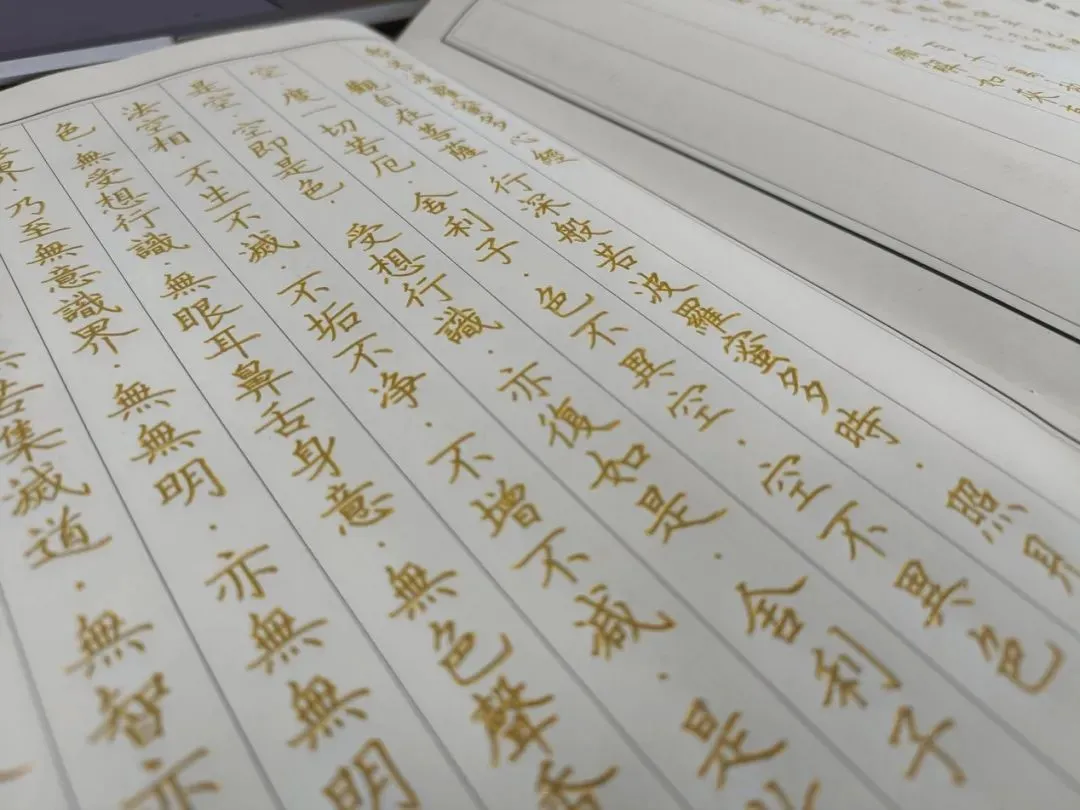 般若波羅蜜多心經
觀自在菩薩·行深般若波羅蜜多時·照見
空·度一切苦厄·舍利子·色不異空·空不異色
是空·空即是色·受想行識·亦復如是·舍利子
法空相·不生不滅·不垢不净·不增不减·是
色·無受想行識·無眼耳鼻舌身意·無色聲香
界·乃至無意識界·無無明·亦無無明
苦集滅道·無智亦